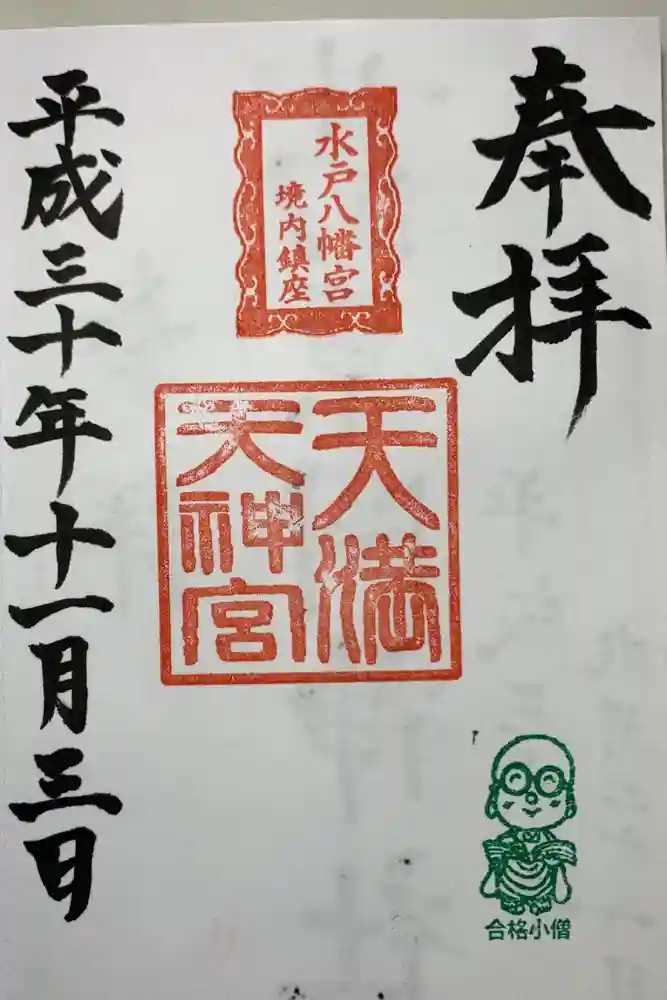 奉拝
水戸八幡宮
境内鎮座
天満
天神宮
平成三十年十一月三日
合格小僧